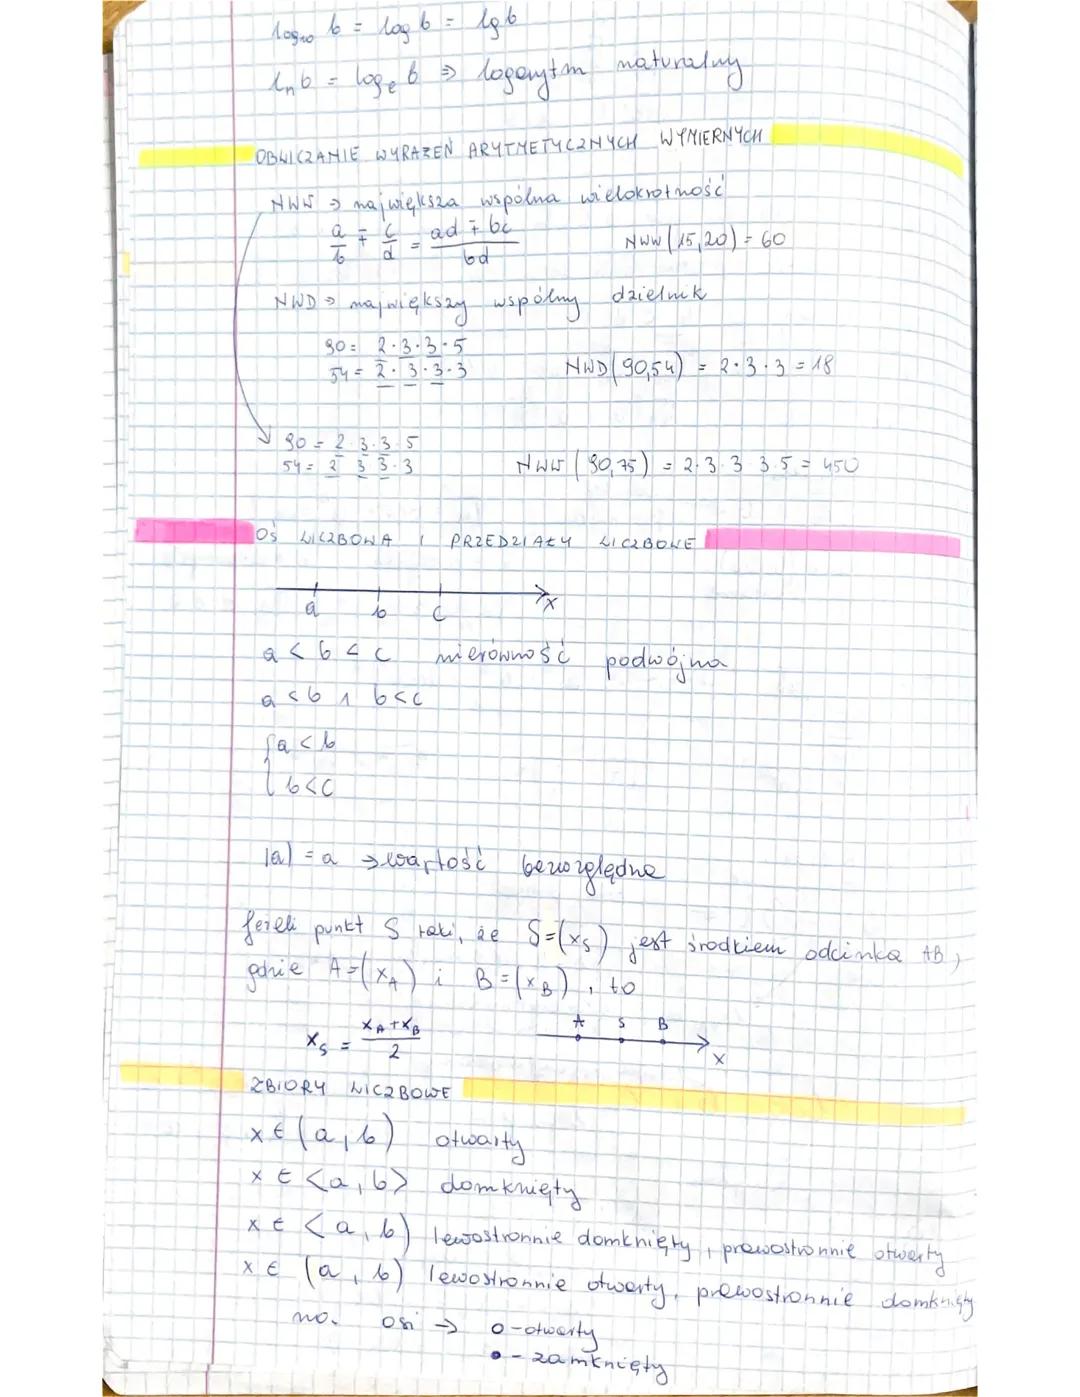 log₁₀ b = log b = lg b
ln b = logₑ b ⇒ logarytm naturalny
OBLICZANIE WYRAŻEŃ ARYTMETYCZNYCH WYMIERNYCH
NWW → największa wspólna wielokrotność
a/b ∓ c/d = (ad ∓ bc)/bd
NWW (15,20) = 60
NWD → największy wspólny dzielnik
90 = 2·3·3·5
54 = 2·3·3·3
NWD (90,54) = 2·3·3 = 18
90 = 2·3·3·5
54 = 2 3 3·3
NWW (90,75) = 2·3·3 3·5 = 450
OŚ LICZBOWA I PRZEDZIAŁY LICZBOWE
a b c x
a < b < c nierówność podwójna
a < b ∧ b < c
{ a < b
b < c
|a| = a → wartość bezwzględna
Jeżeli punkt S taki, że S=(xS) jest środkiem odcinka AB,
gdzie A=(xA) i B=(xB), to
xS = (xA + xB)/2
A S B
x
ZBIORY LICZBOWE
x ∈ (a, b) otwarty
x ∈ <a, b> domknięty
x ∈ <a, b) lewostronnie domknięty, prawostronnie otwarty
x ∈ (a, b) lewostronnie otwarty, prawostronnie domknięty
na osi → o - otwarty
• - zamknięty